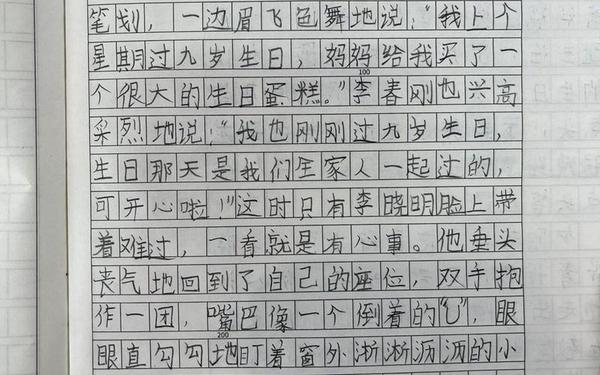 笔划，一边眉飞色舞地说：“我上个
星期过九岁生日，妈妈给我买了一
个很大的生日蛋糕。”李春刚也兴高
采烈地说：“我也刚刚过九岁生日，
生日那天是我们全家人一起过的，
可开心啦！”这时只有李晓明脸上带
着难过，一看就是有心事。他垂头
丧气地回到了自己的座位，双手抱
作一团，嘴巴像一个倒着的“U”，眼
眼直勾勾地盯着窗外淅淅沥沥的小